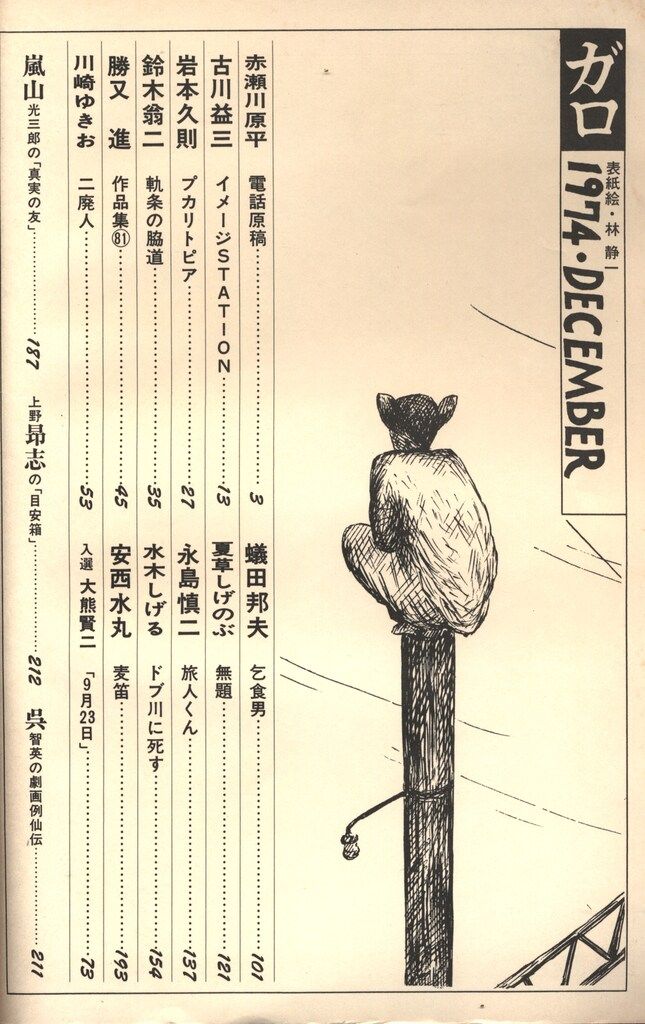 ガロ
表紙絵・林 静一
1974・DECEMBER
赤瀬川原平 電話原稿 3
古川益三 イメージSTATION 13
岩本久則 プカリトピア 27
鈴木翁二 軌条の脇道 35
勝又 進 作品集㊛ 45
川崎ゆきお 二廃人 53
蟻田邦夫 乞食男 101
夏草しげのぶ 無題 121
永島慎二 旅人くん 137
水木しげる ドブ川に死す 154
安西水丸 麦笛 193
入選 大熊賢二 「9月23日」 73
嵐山光三郎の「真実の友」 187
上野昻志の「目安箱」 212
呉智英の劇画例仙伝 211